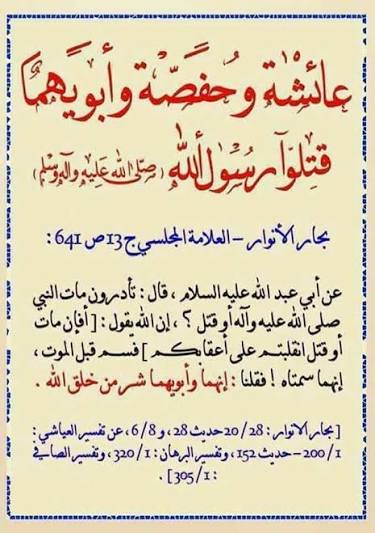 عائشة وحفصة وأبويهما
قتلوا رسول الله (صلى الله عليه وآله وسلم)
بحار الأنوار - العلامة المجلسي ج 13 ص 641 :
عن أبي عبد الله عليه السلام ، قال : تأدرون مات النبي
صلى الله عليه وآله أو قتل ؟ ، إن الله يقول : [ أفإن مات
أو قتل انقلبتم على أعقابكم ] فسم قبل الموت ،
إنهما سمتاه ! فقلنا : إنهما وأبويهما شر من خلق الله .
[ بحار الانوار : 20/28 حديث 28 ، و 6/8 ، عن تفسير العياشي :
1/200 - حديث 152 ، وتفسير البرهان : 1/320 ، وتفسير الصافي
: 1/305 ] .